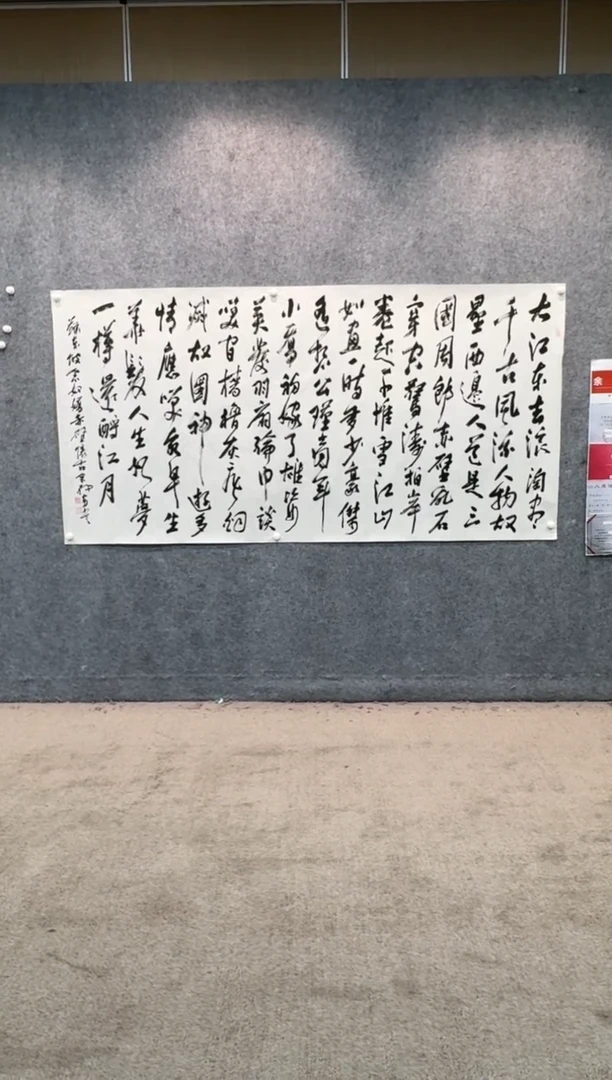 大江东去浪淘尽
千古風流人物故
壘西邊人道是三
國周郎赤壁乱石
穿空驚濤拍岸
卷起千堆雪江山
如画一時多少豪傑
遥想公瑾當年
小喬初嫁了雄姿
英發羽扇綸巾談
笑间檣櫓灰飛烟
滅故國神遊多
情應笑我早生
華髮人生如夢
一樽還酹江月
蘇东坡念奴嬌赤壁懷古
余